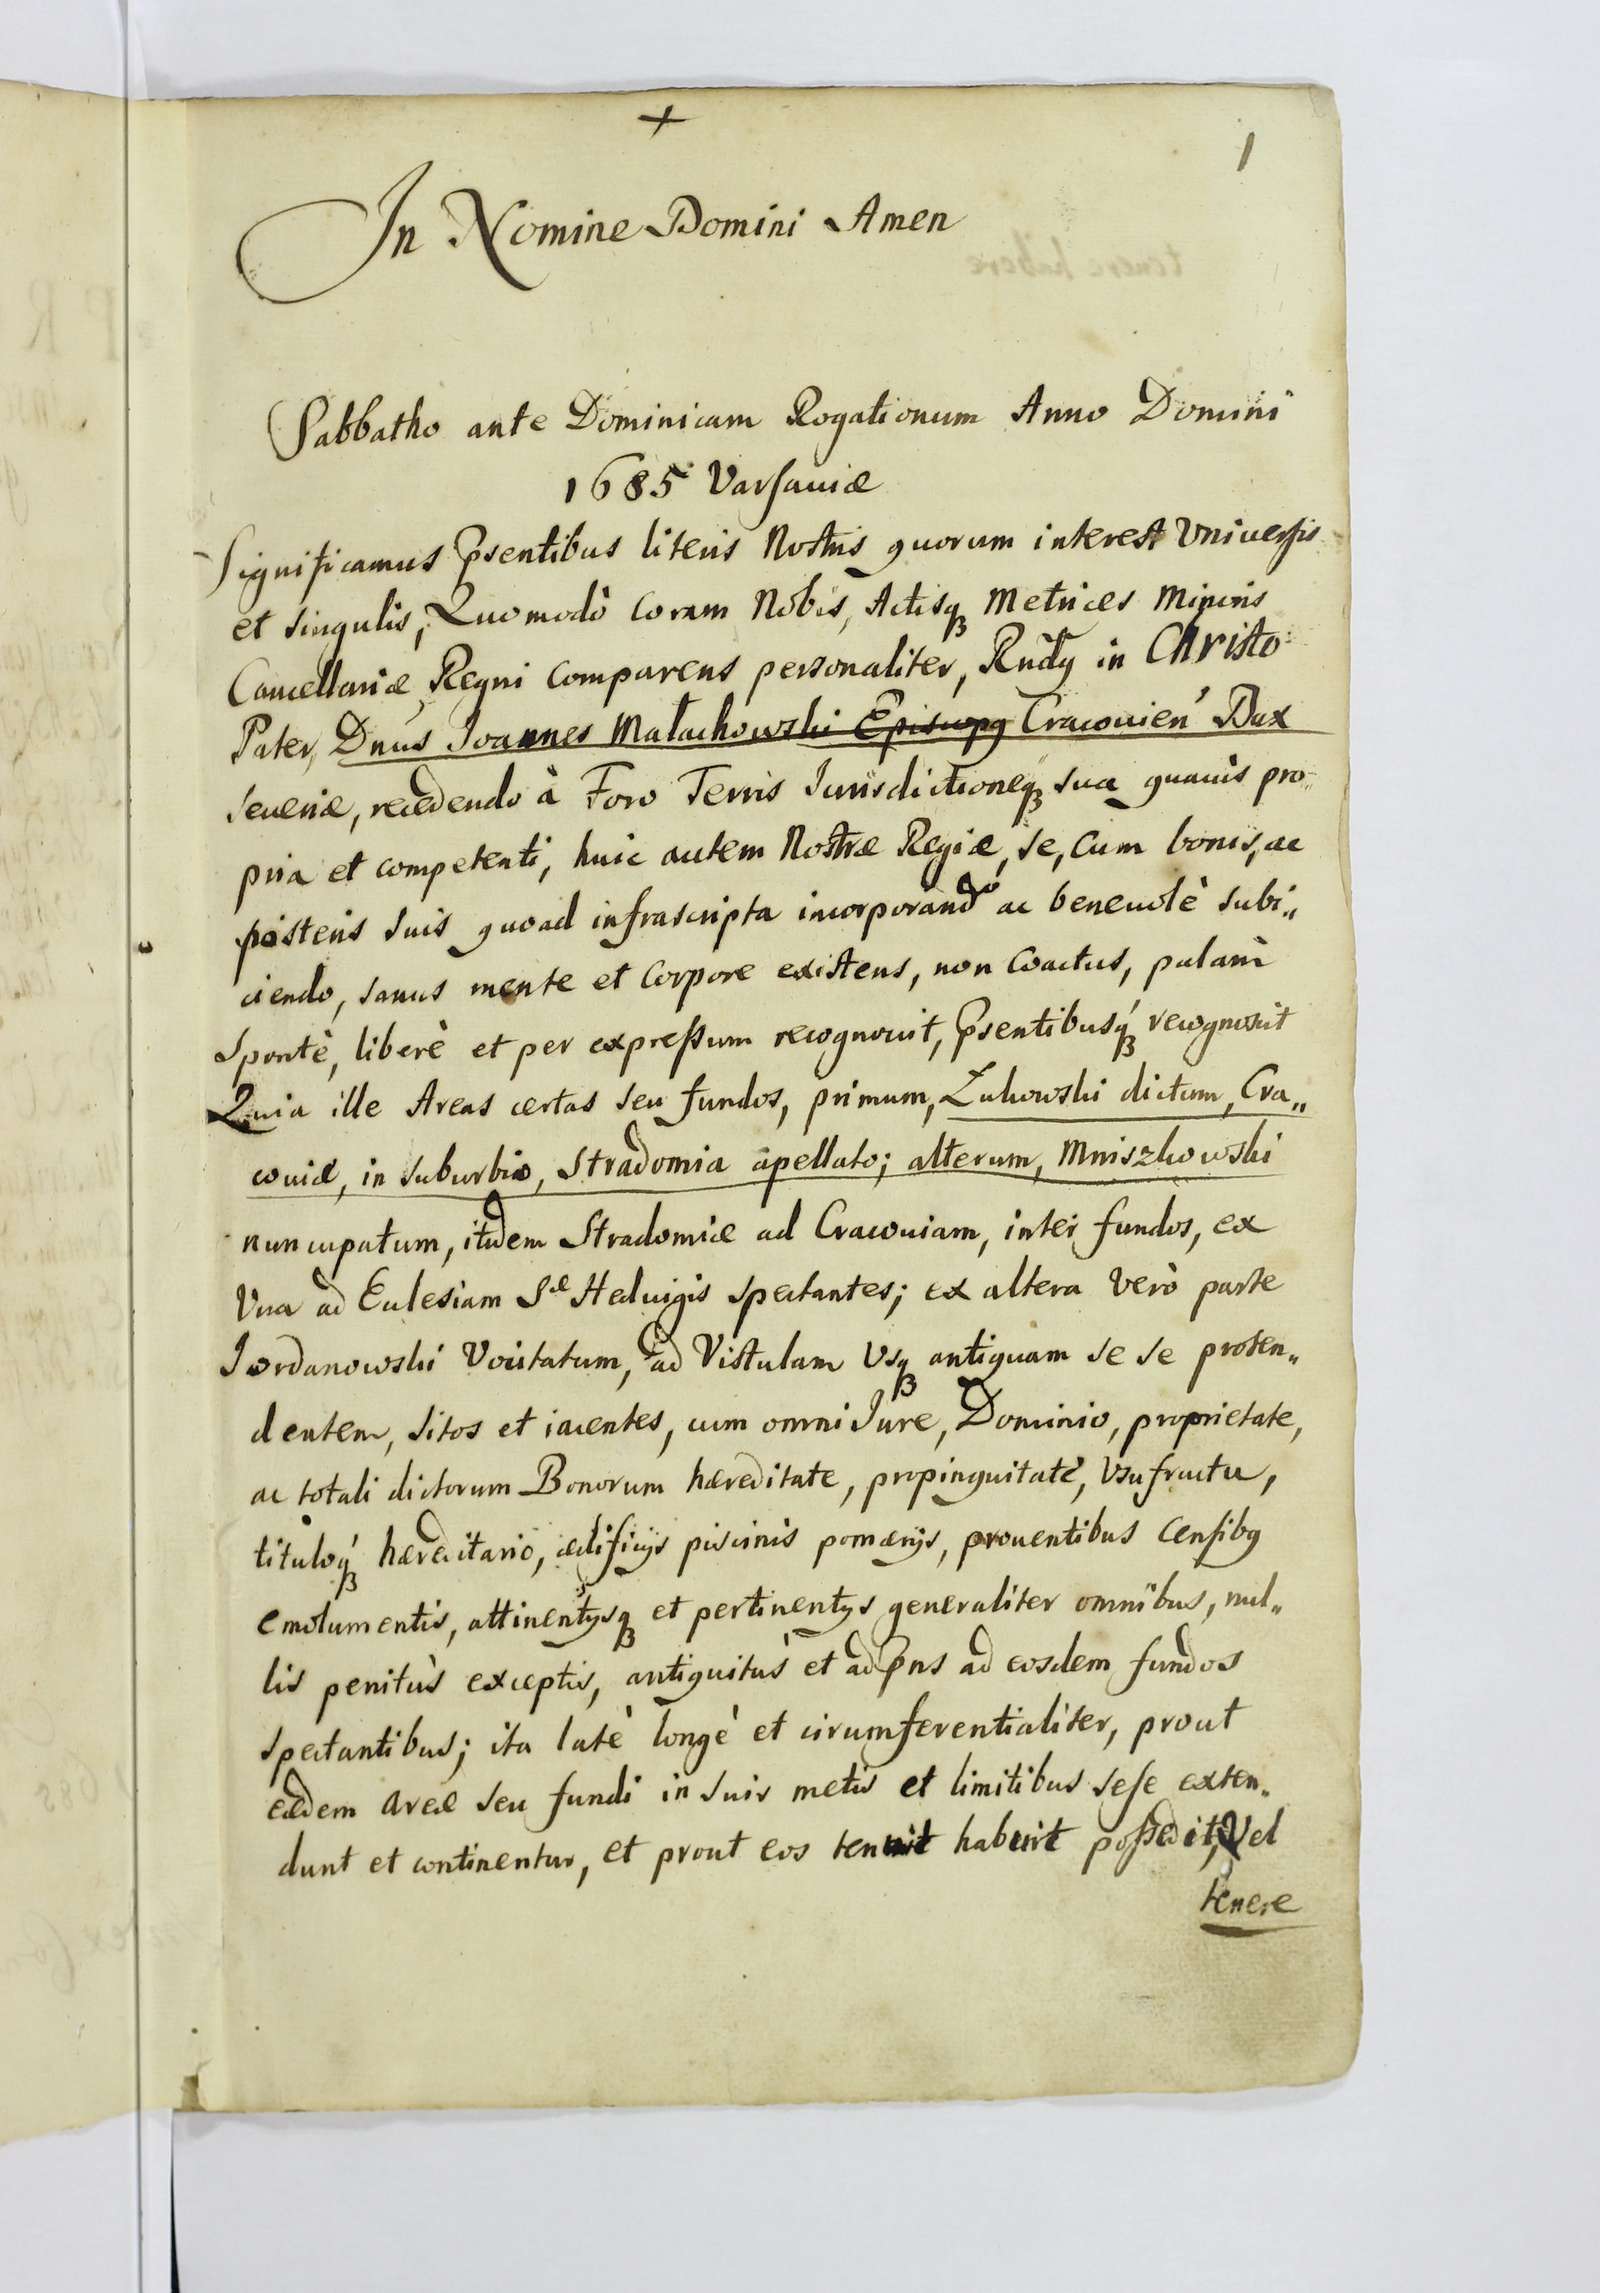 +
1
In Nomine Domini Amen
Sabbatho ante Dominicam Rogationum Anno Domini
1685 Varsauiæ
Significamus Psentibus literis Nostris quorum interest Vniuersis
et singulis, Quomodò Coram Nobis, Actisq Metrices Minoris
Cancellariæ Regni Comparens personaliter, Rndq in Christo
Pater, Dnus Joannes Małachowski Episcopq Cracouien Dux
Seueriæ, recedendo à Foro Terris Jurisdictioneq sua quauis pro„
pria et competenti, huic autem Nostræ Regiæ, se, Cum bonis, ac
posteris suis quoad infrascripta incorporando ac beneuolè subi„
ciendo, sanus mente et Corpore existens, non Coactus, palam
Spontè, liberè et per expressum recognouit, Psentibusq recognoscit
Quia ille Areas certas seu fundos, primum, Zukowski dictum, Cra„
couiæ, in suburbio, Stradomia apellato; alterum, Mniszkowski
nuncupatum, itidem Stradomiæ ad Cracouiam, inter fundos, ex
Vna ad Eclesiam Sæ Heduigis spectantes; ex altera Verò parte
Jordanowski Vocitatum, ad Vistulam Vsq antiquam se se proten„
dentem, sitos et iacentes, cum omni Jure, Dominio, proprietate,
ac totali dictorum Bonorum hæreditate, propinquitate, Vsufructu,
tituloq hæreditario, ædificijs piscinis pomærijs, prouentibus Censibq
emolumentis, attinentijsq et pertinentijs generaliter omnibus, nul„
lis penitùs exceptis, antiquitùs et ad Pns ad eosdem fundos
spectantibus; ita latè longè et circumferentialiter, prout
eædem areæ seu fundi in suis metis et limitibus sese exten„
dunt et continentur, et prout eos tenuit habuit possedit, Vel
tenere